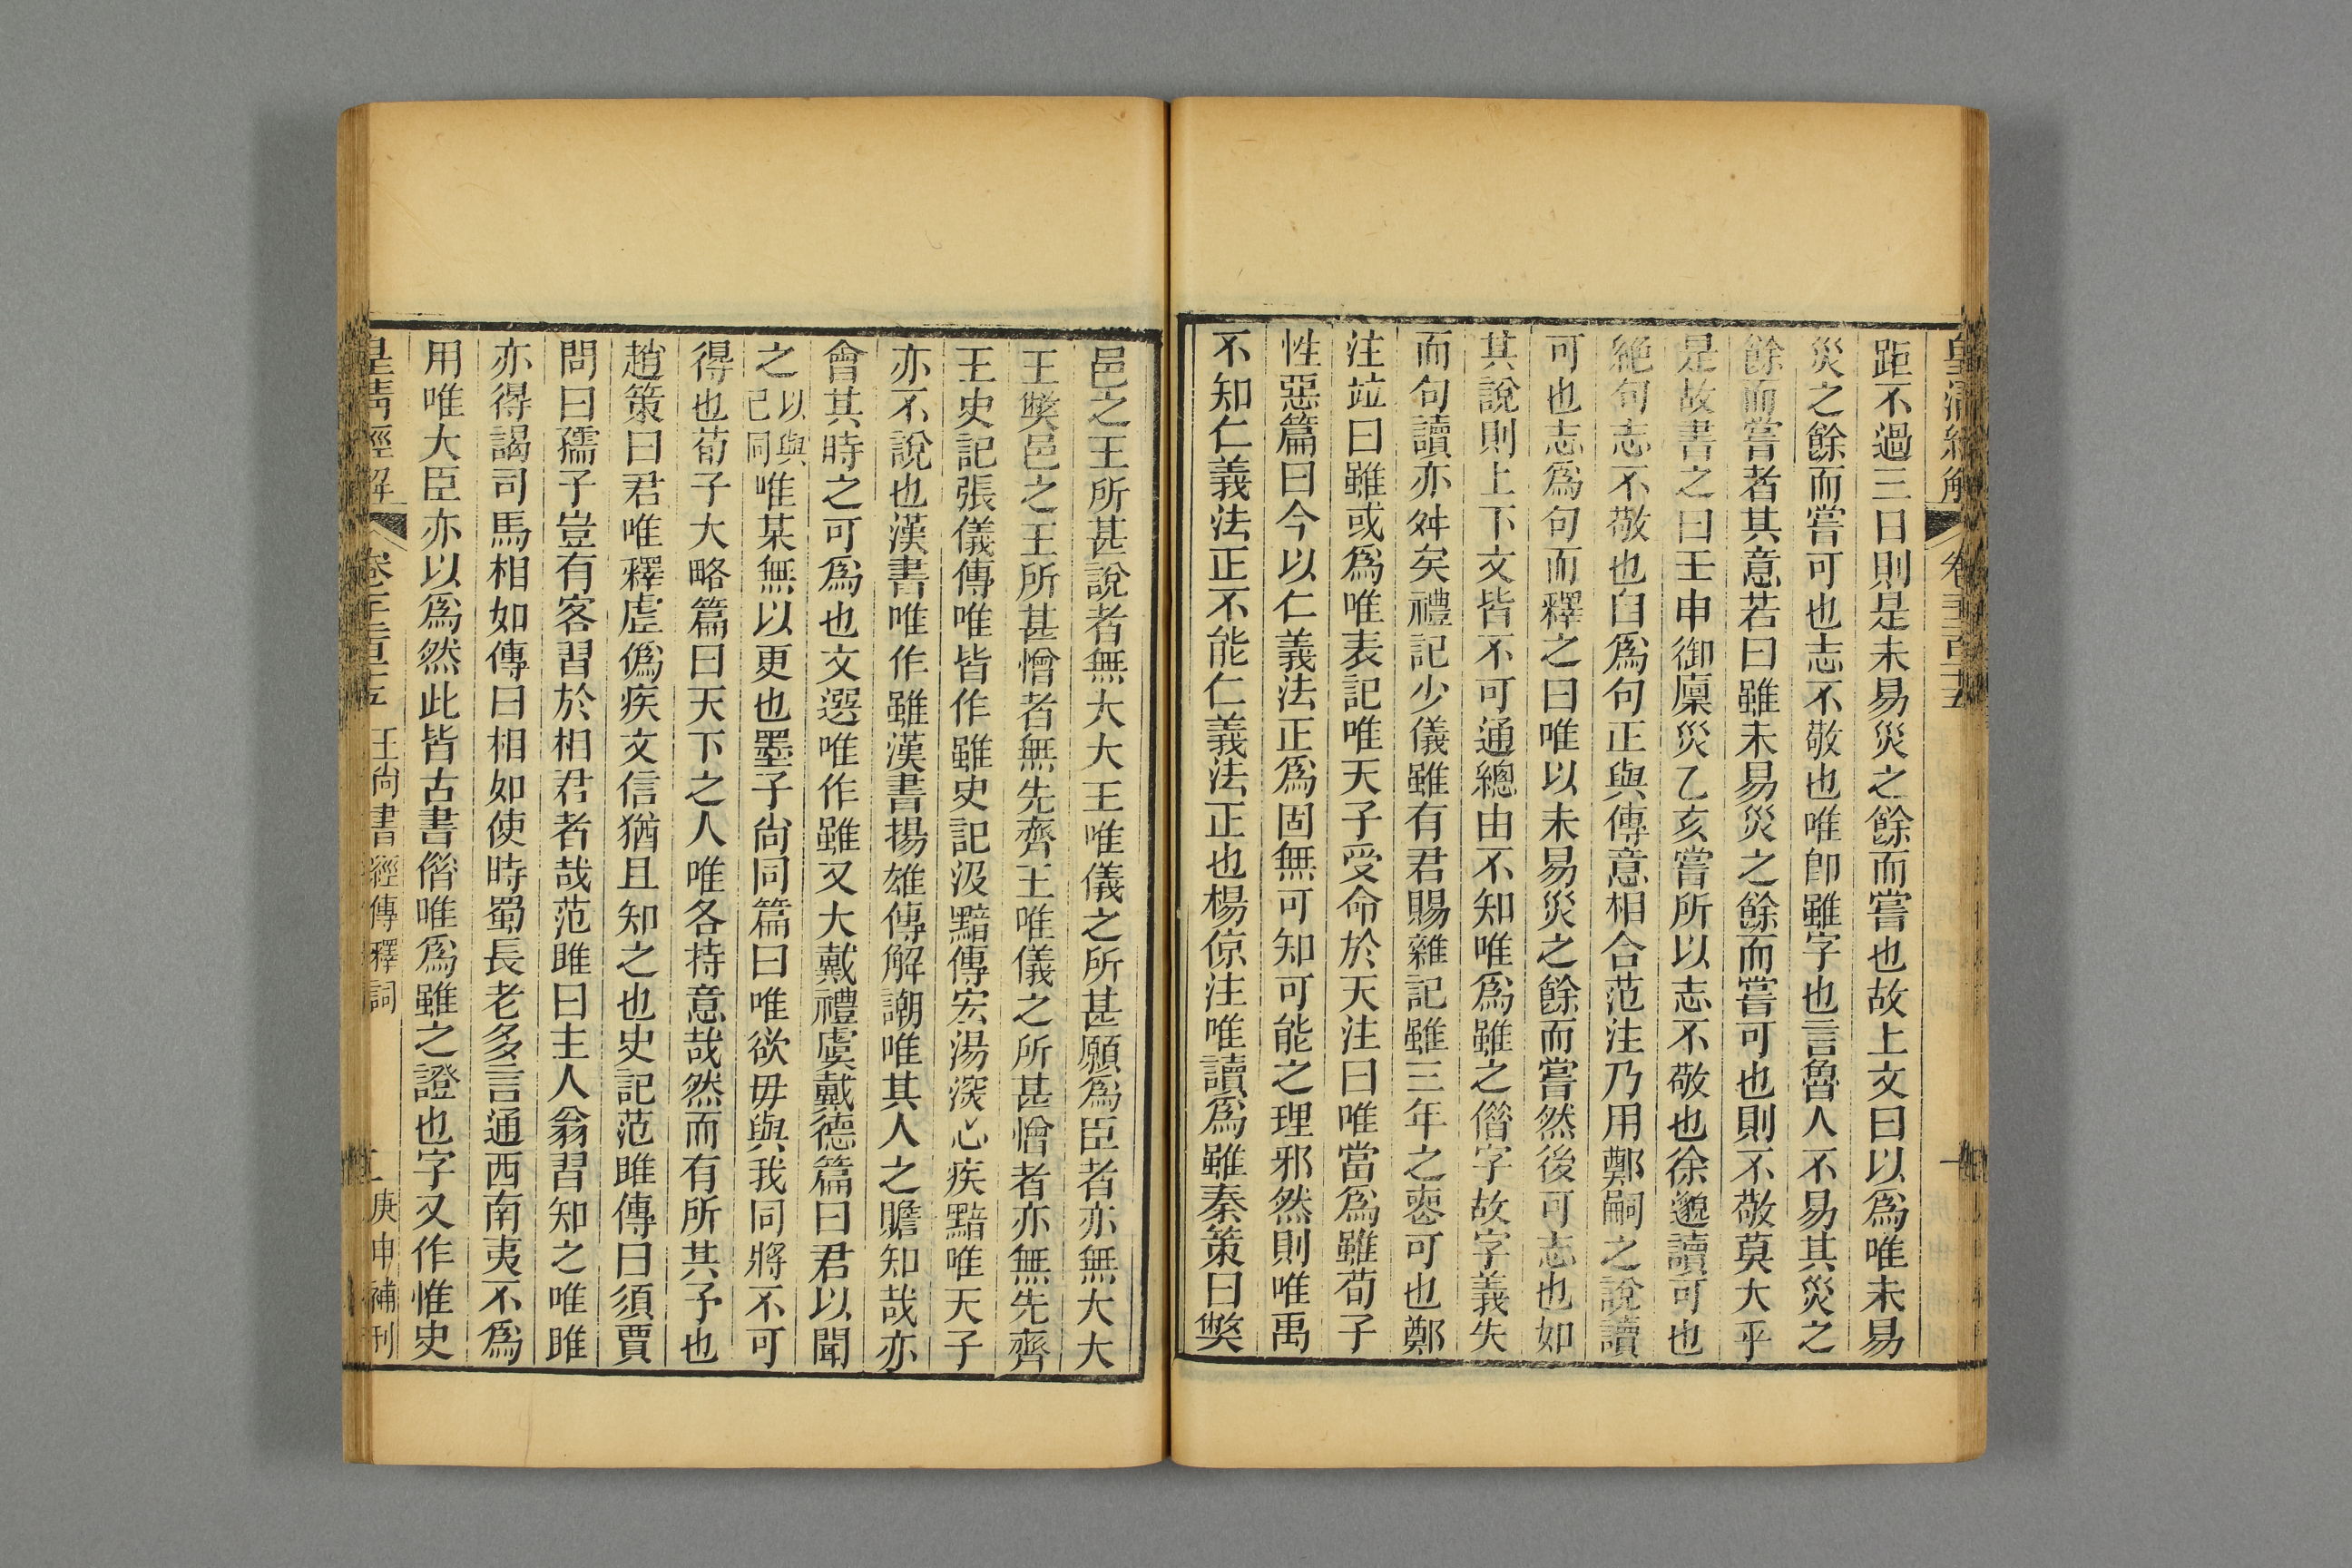 皇清經解
卷
距不過三日則是未易災之餘而嘗也故上文曰以爲唯未易
災之餘而嘗可也志不敬也唯卽雖字也言魯人不易其災之
餘而嘗者其意若曰雖未易災之餘而嘗可也則不敬莫大乎
是故書之曰壬申御廩災乙亥嘗所以志不敬也徐邈讀可也
絕句志不敬也自爲句正與傳意相合范注乃用鄭嗣之說讀
可也志爲句而釋之曰唯以未易災之餘而嘗然後可志也如
其說則上下文皆不可通總由不知唯爲雖之借字故字義失
而句讀亦舛矣禮記少儀雖有君賜雜記雖三年之喪可也鄭
注竝曰雖或爲唯表記唯天子受命於天注曰唯當爲雖荀子
性惡篇曰今以仁義法正爲固無可知可能之理邪然則唯禹
不知仁義法正不能仁義法正也楊倞注唯讀爲雖秦策曰獘
邑之王所甚說者無大大王唯儀之所甚願爲臣者亦無大大
王獘邑之王所甚憎者無先齊王唯儀之所甚憎者亦無先齊
王史記張儀傳唯皆作雖史記汲黯傳宏湯深心疾黯唯天子
亦不說也漢書唯作雖漢書揚雄傳解謿唯其人之贍知哉亦
會其時之可爲也文選唯作雖又大戴禮虞戴德篇曰君以聞
之以與已同唯某無以更也墨子尙同篇曰唯欲毋與我同將不可
得也荀子大略篇曰天下之人唯各持意哉然而有所共予也
趙策曰君唯釋虛僞疾文信猶且知之也史記范雎傳曰須賈
問曰孺子豈有客習於相君者哉范雎曰主人翁習知之唯雎
亦得謁司馬相如傳曰相如使時蜀長老多言通西南夷不爲
用唯大臣亦以爲然此皆古書借唯爲雖之證也字又作惟史
皇清經解
王尙書經傳釋詞
庚申補刊